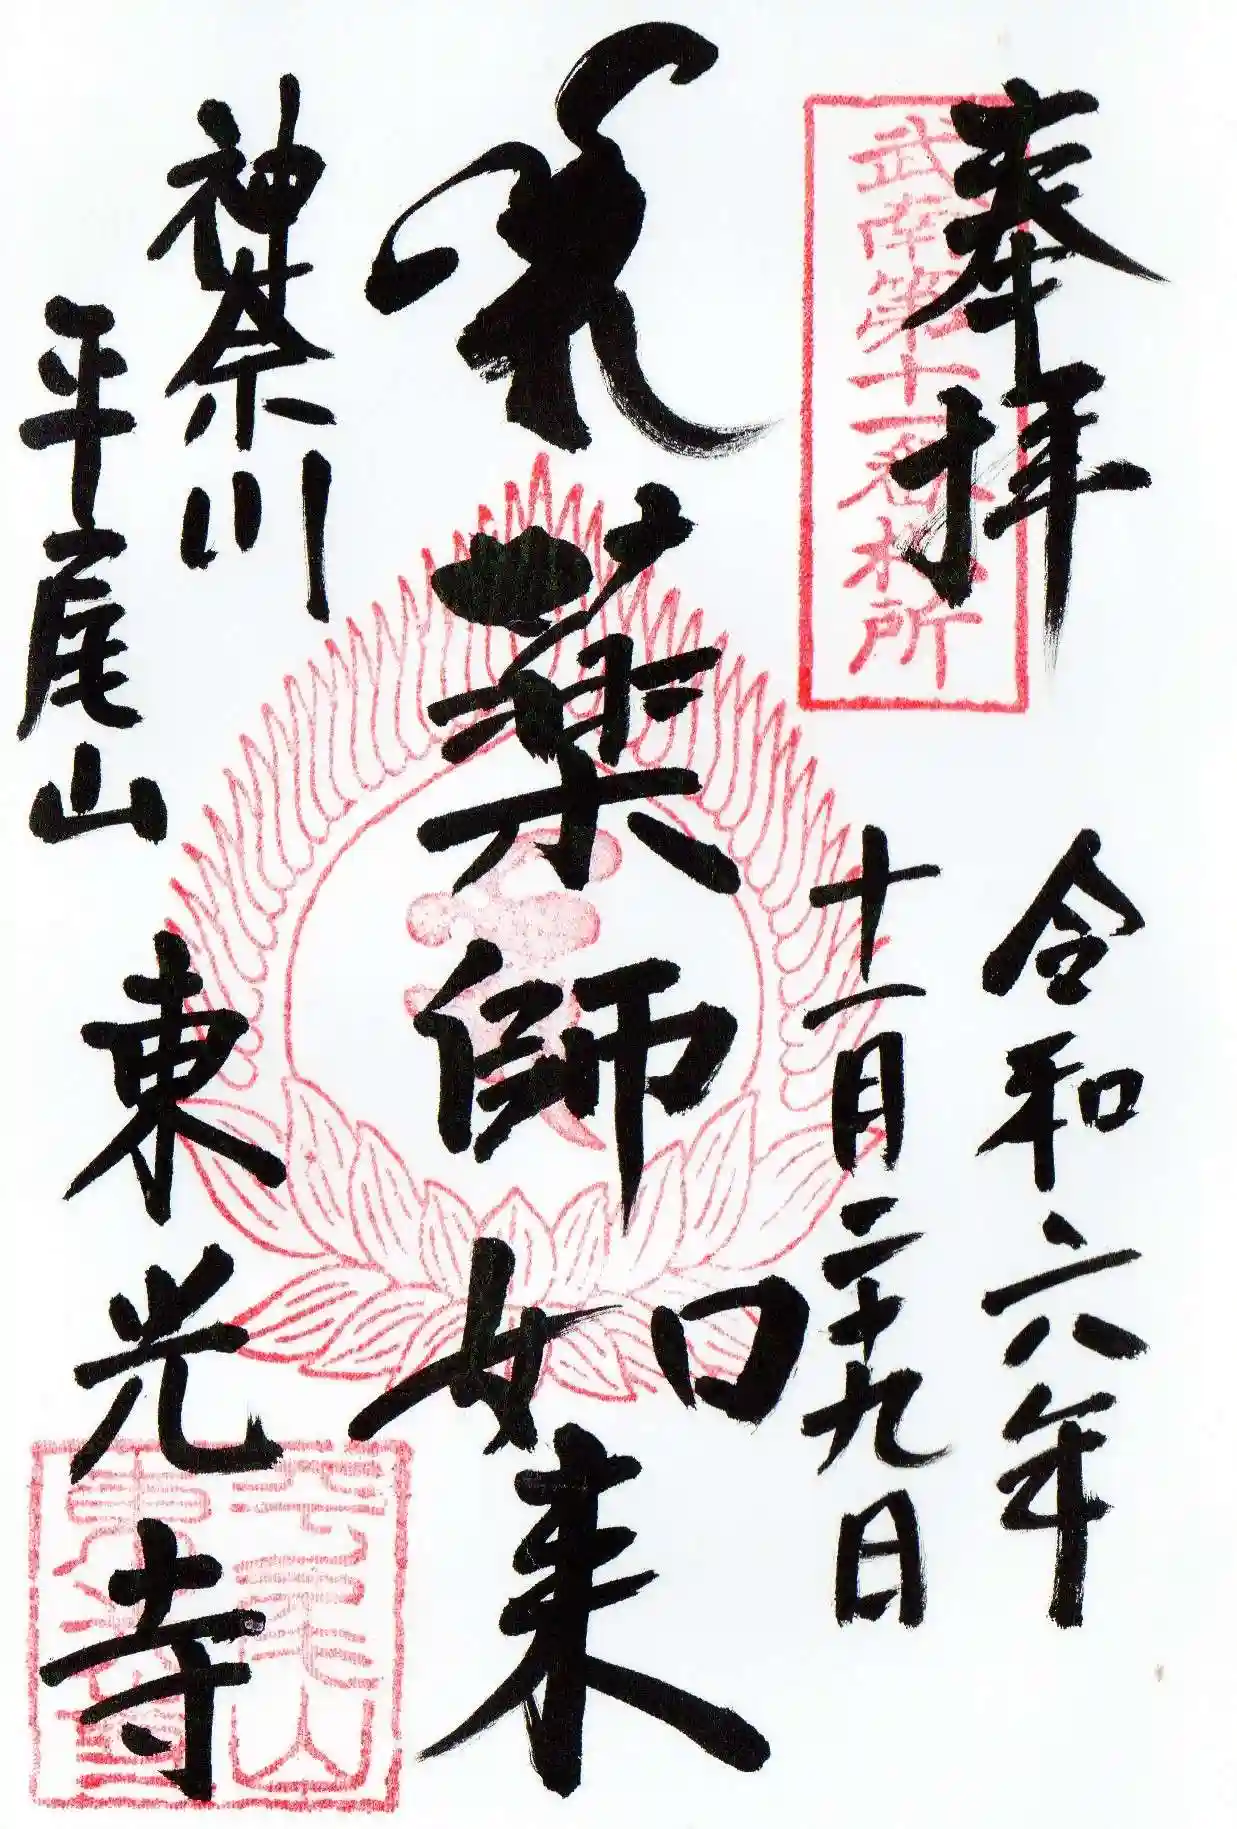 奉拝
武南第十一番札所
令和六年
十一月二十九日
薬師如来
神奈川
平尾山
東光寺